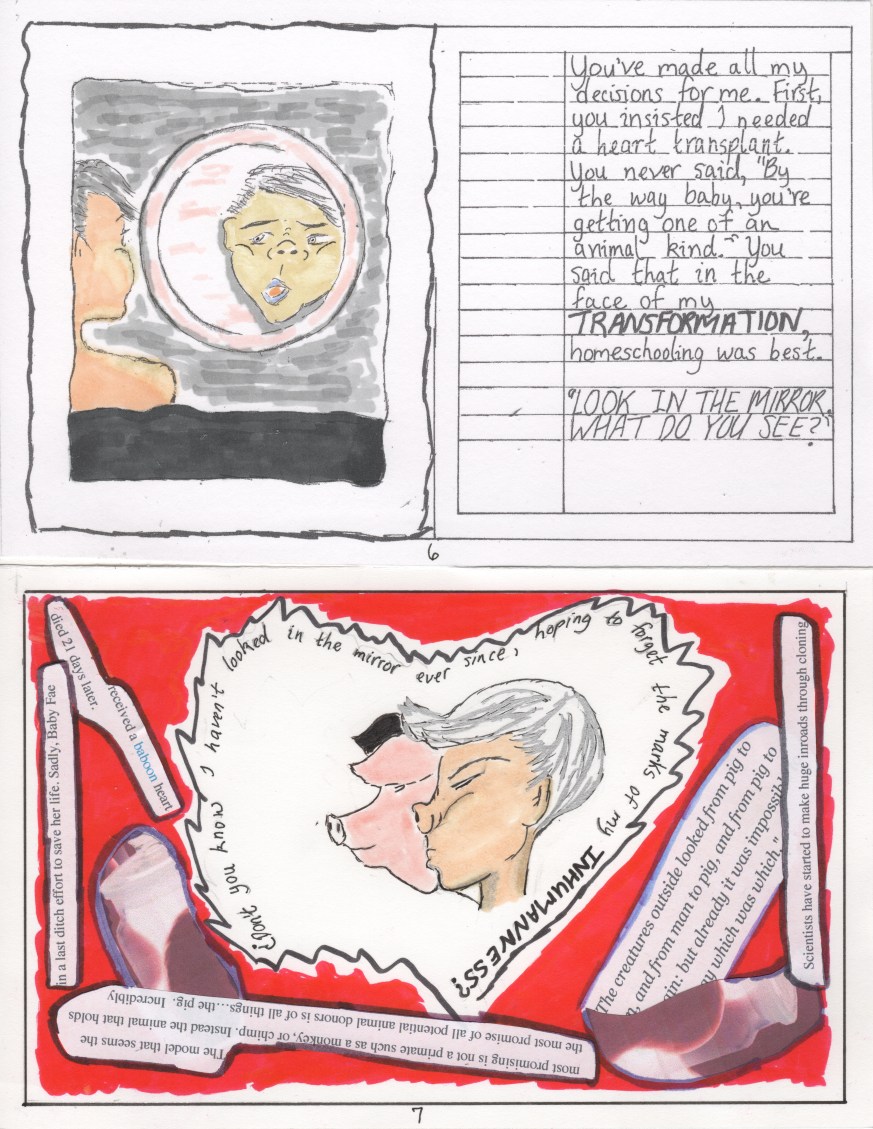 You've made all my
decisions for me. First,
you insisted I needed
a heart transplant.
You never said, "By
the way baby, you're
getting one of an
animal kind." You
said that in the
face of my
TRANSFORMATION,
homeschooling was best.
"LOOK IN THE MIRROR.
WHAT DO YOU SEE?"
6
¿Don't you know I haven't looked in the mirror ever since, hoping to forget the marks of my INHUMANNESS?
in a last ditch effort to save her life. Sadly, Baby Fae
received a baboon heart
died 21 days later.
The model that seems the
most promising is not a primate such as a monkey, or chimp. Instead the animal that holds
the most promise of all potential animal donors is of all things....the pig. Incredibly
The creatures outside looked from pig to
, and from man to pig, and from pig to
ain: but already it was impossibl
y which was which."
Scientists have started to make huge inroads through cloning
7